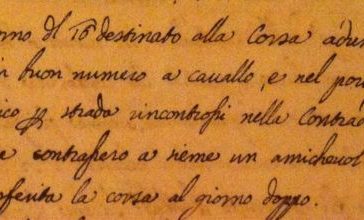 orno dl 16 destinato alla Corsa adre
n buon numero a cavallo, e nel por
ico p strada incontrossi nella Contrad
e contrassero a sieme un amichevol
sferita la corsa al giorno doppo.